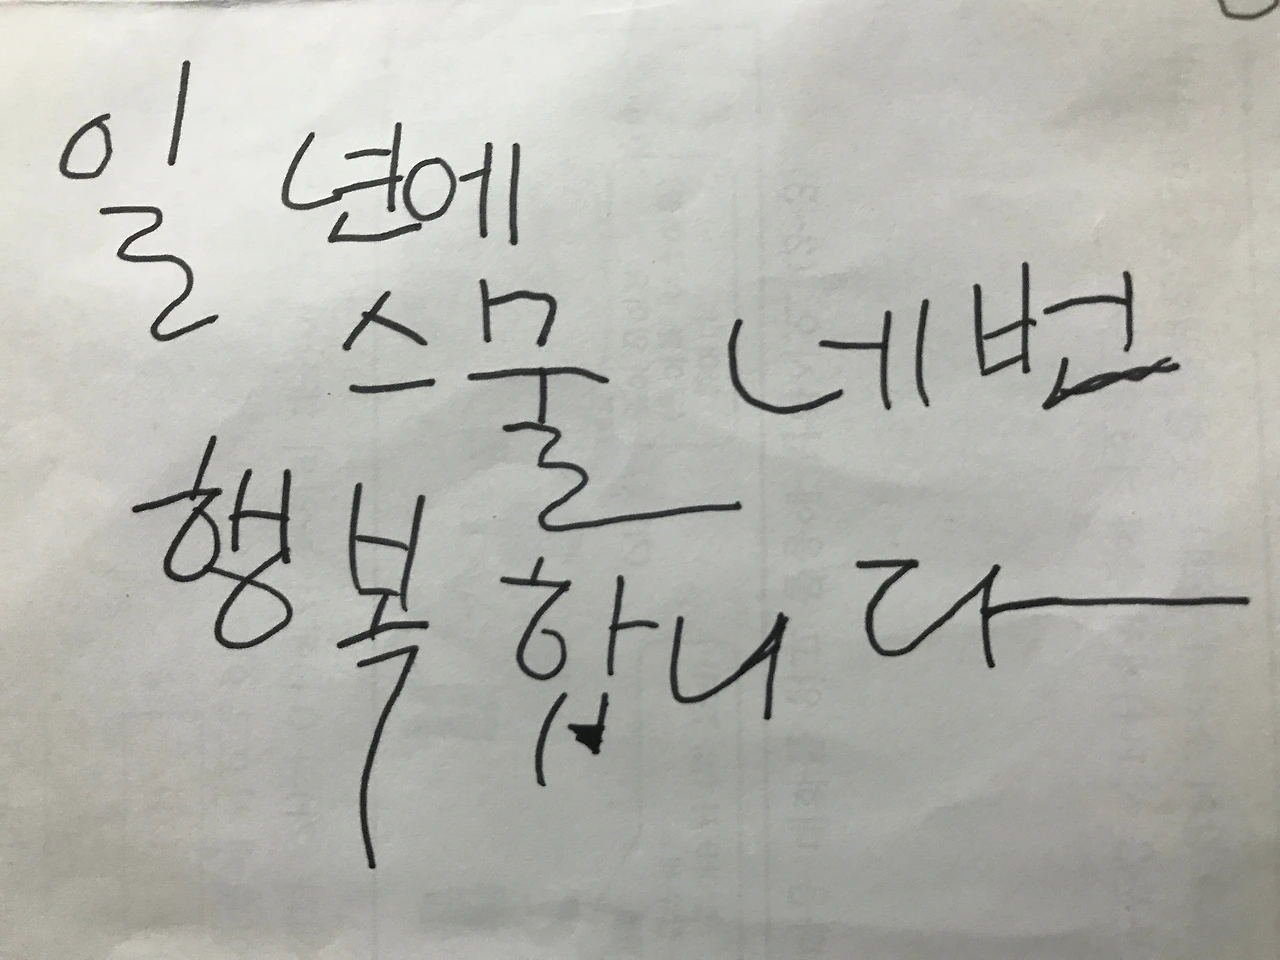 일 년에
스물 네번
행복 합니다